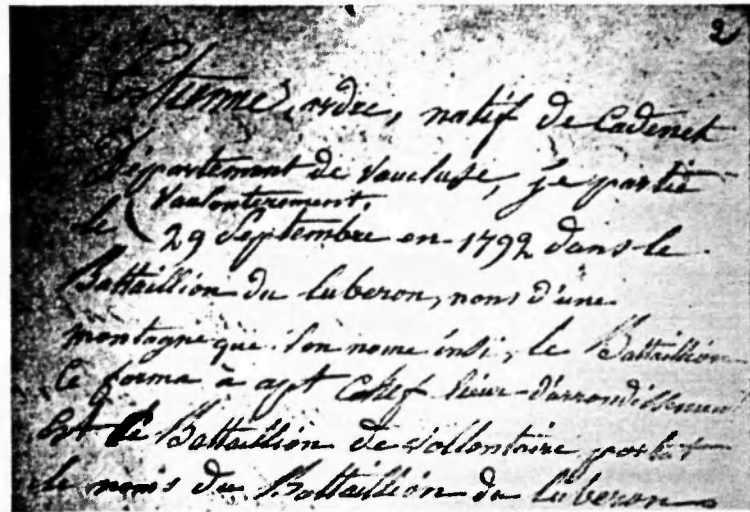 2
Etienne, ordre, natif de Cadenet
Département de Vaucluse, je partis
Vaulonterement.
le ( 29 Septembre en 1792 dans le
Battaillion du luberon, noms d'une
montagne que l'on nome insi, le Battaillion
Ce forma à apt Chef lieux d'arrondissement
Et le Battaillion de vollontaire portat
le noms du Battaillion du luberon